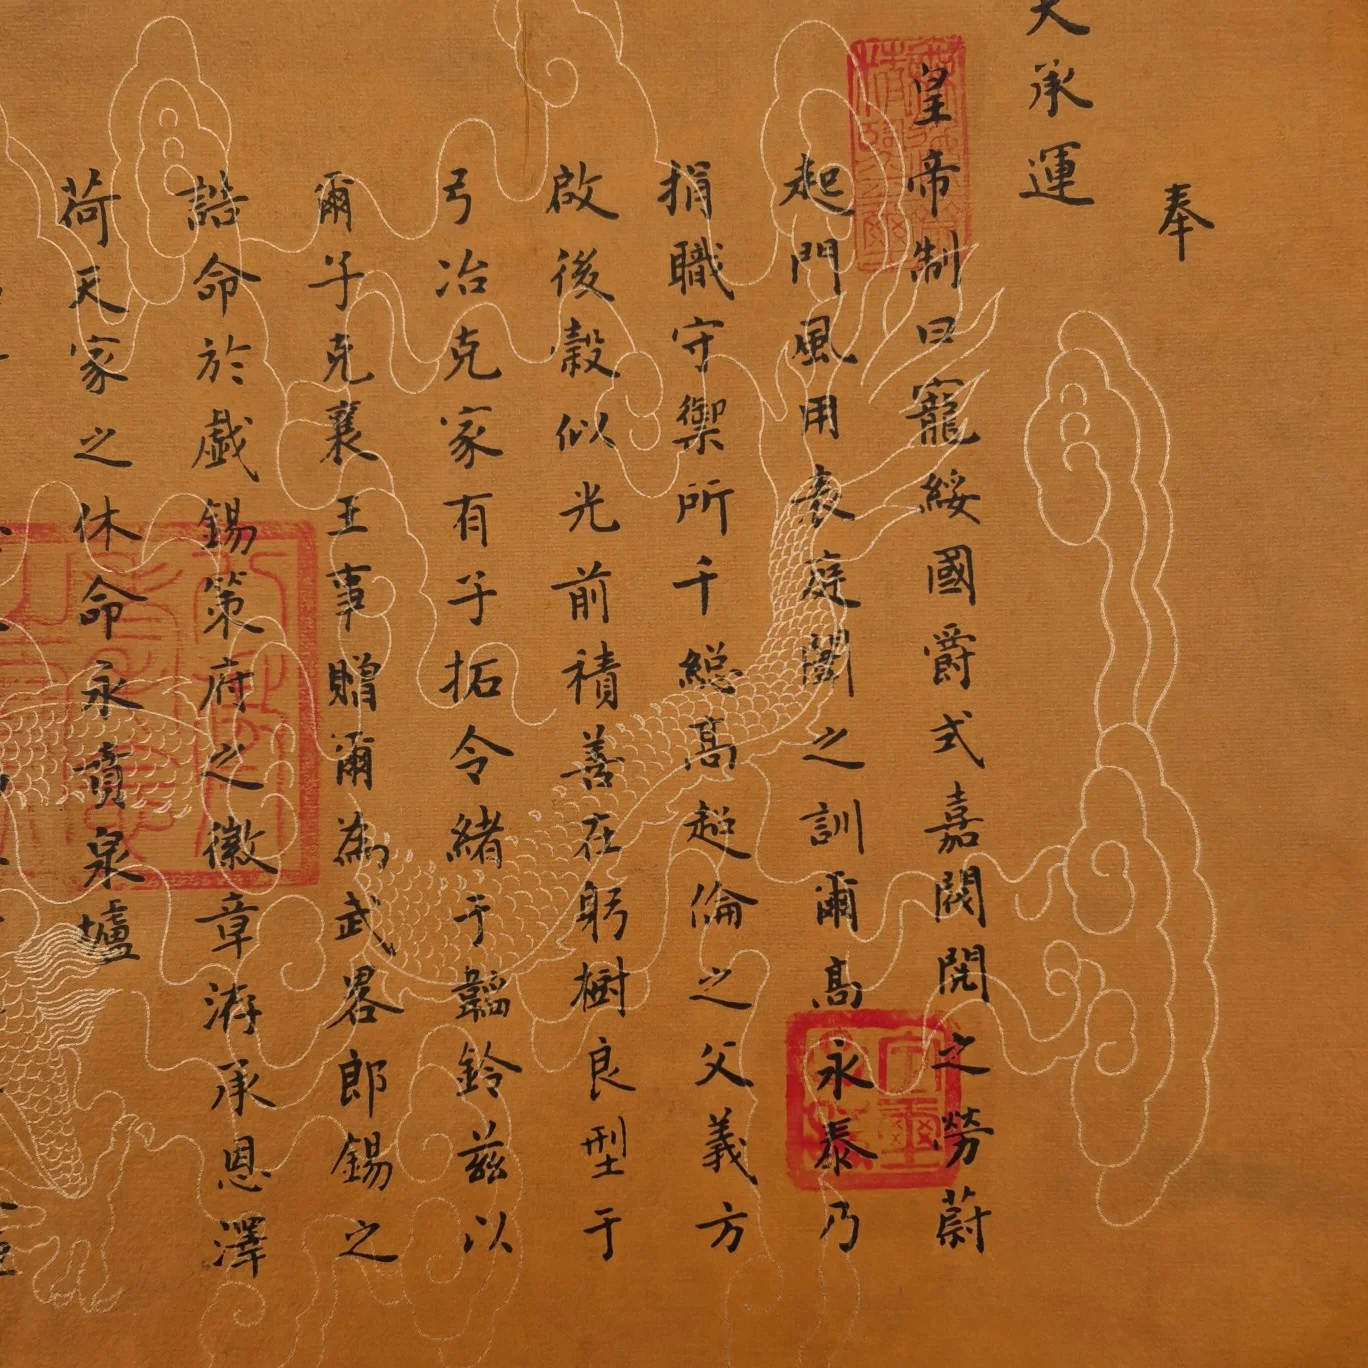 奉
天承運
皇帝制曰寵綏國爵式嘉閥閱之勞蔚
起門風用表庭闈之訓爾高永泰乃
捐職守禦所千總高超倫之父義方
啟後穀似光前積善在躬樹良型于
弓冶克家有子拓令緒于韜鈴茲以
爾子克襄王事贈爾為武畧郎錫之
誥命於戲錫策府之徽章洊承恩澤
荷天家之休命永賁泉壚